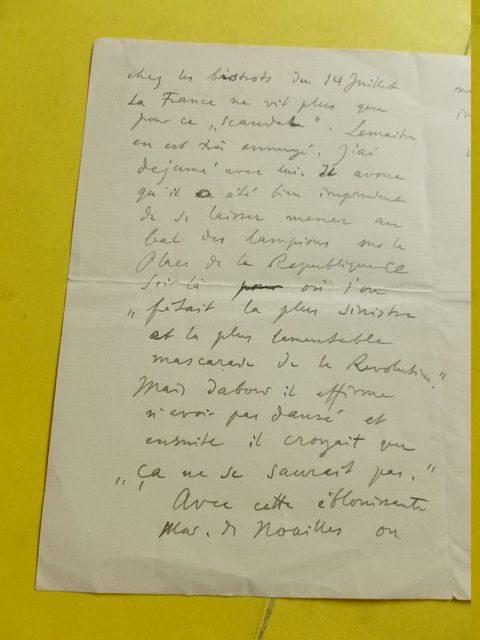 chez les bistrots du 14 Juillet
La France ne vit plus que
pour ce „scandal". Lemaitre
en est très ennuyé. J'ai
dejeuné avec lui. Il avoue
qu'il a été bien imprudent
de se laisser mener au
bal des lampions sur la
Place de la Republique ce
soir là pour où l'on
„fêtait la plus sinistre
et la plus lamentable
mascarade de la Revolution."
Mais dabord il affirme
n'avoir pas dansé et
ensuite il croyait que
„ça ne se saurait pas."
Avec cette éblouissante
Mar. de Noailles on